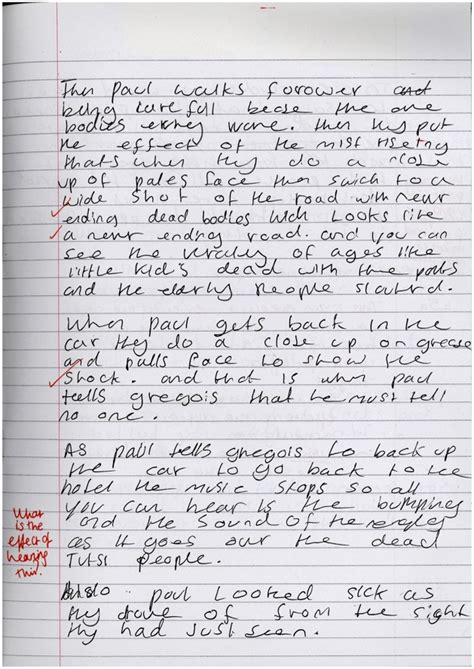 Then Paul walks forower and
being care full becse the are
bodies evrey were. then they put
the effect of the mist riseing
thats when they do a close
up of pales face then swich to a
wide shot of the road with never
ending dead bodies wich looks like
a never ending road. and you can
see the viraley of ages like
little kid's dead with there
and the elderly people slautrd.
When paul gets back in the
car they do a close up on
and palls face to show the
shock. and that is when paul
tells gregois that he must tell
no one.
As paul tells gregois to back up
the car to go back to the
hotel the music stops so all
you can hear is the bumping
and the sound of the
as it goes our the dead
Tutsi people.
Also paul looked sick as
they drove of from the sight
they had just seen.
What
is the
effect of
hearing
this.